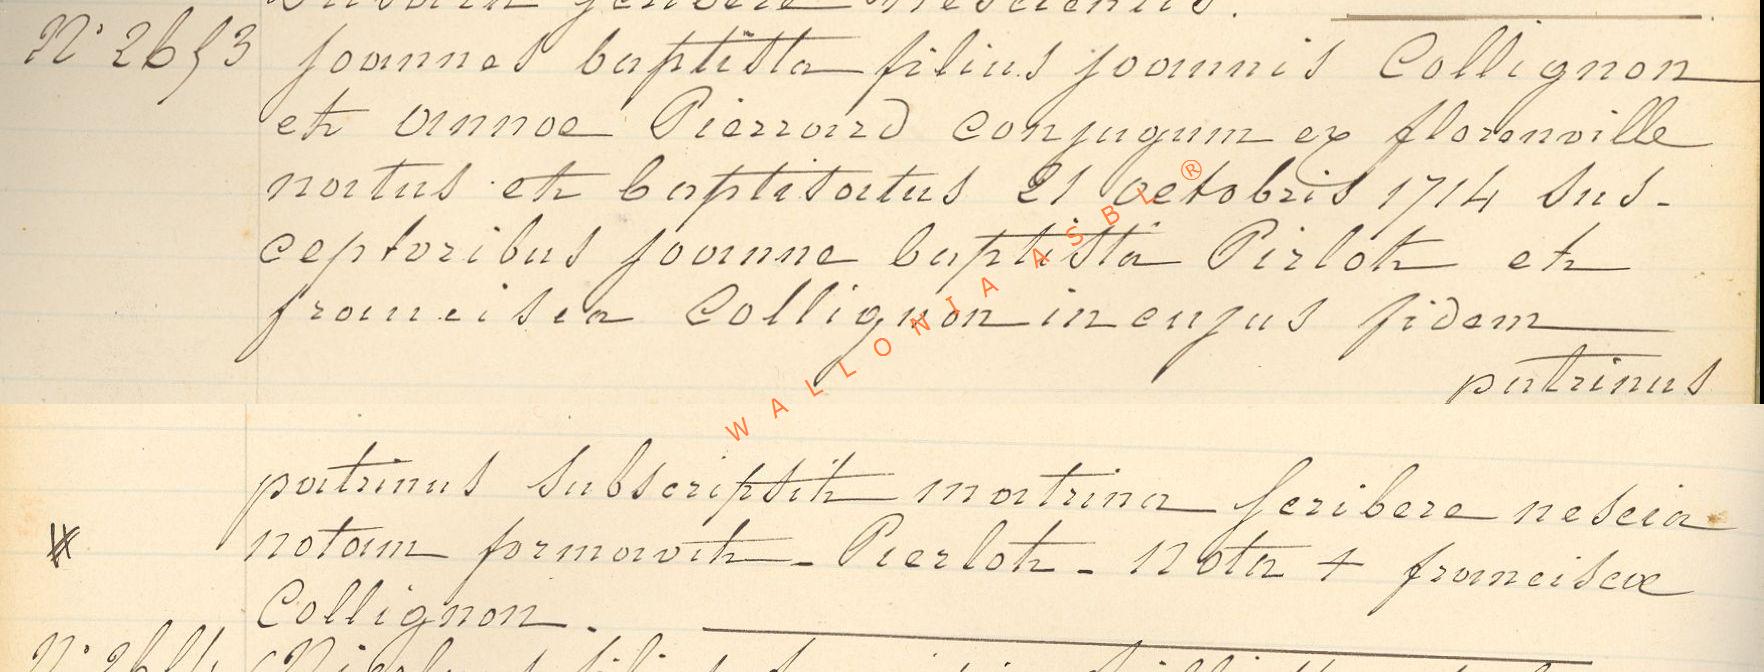 N° 2653 joannes baptista filius joannis Collignon
et annae Pierrard conjugum ex florenville
natus et baptisatus 21 octobris 1714 sus-
ceptoribus joanne baptista Pirlot et
francisca Collignon in cujus fidem
patrinus
WALLONIA ASBL ®
patrinus subscripsit matrina scribere nescia
notam formavit - Pierlot - Nota + franciscae
Collignon.